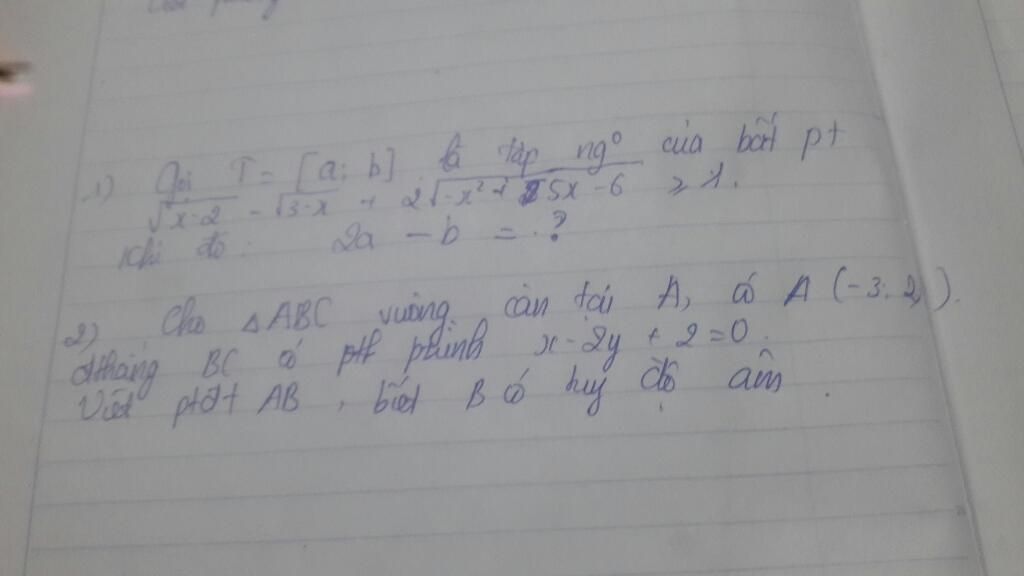 1) Gọi T = [a; b] là tập ng⁰ của bất pt
√x-2 - √3-x + 2√-x²+5x-6 ≥ 1.
Khi đó: 2a - b = ?
2) Cho △ABC vuông cân tại A, có A (-3; 2).
đthẳng BC có pt x-2y+2=0.
Viết ptđt AB, biết B có huy độ âm.